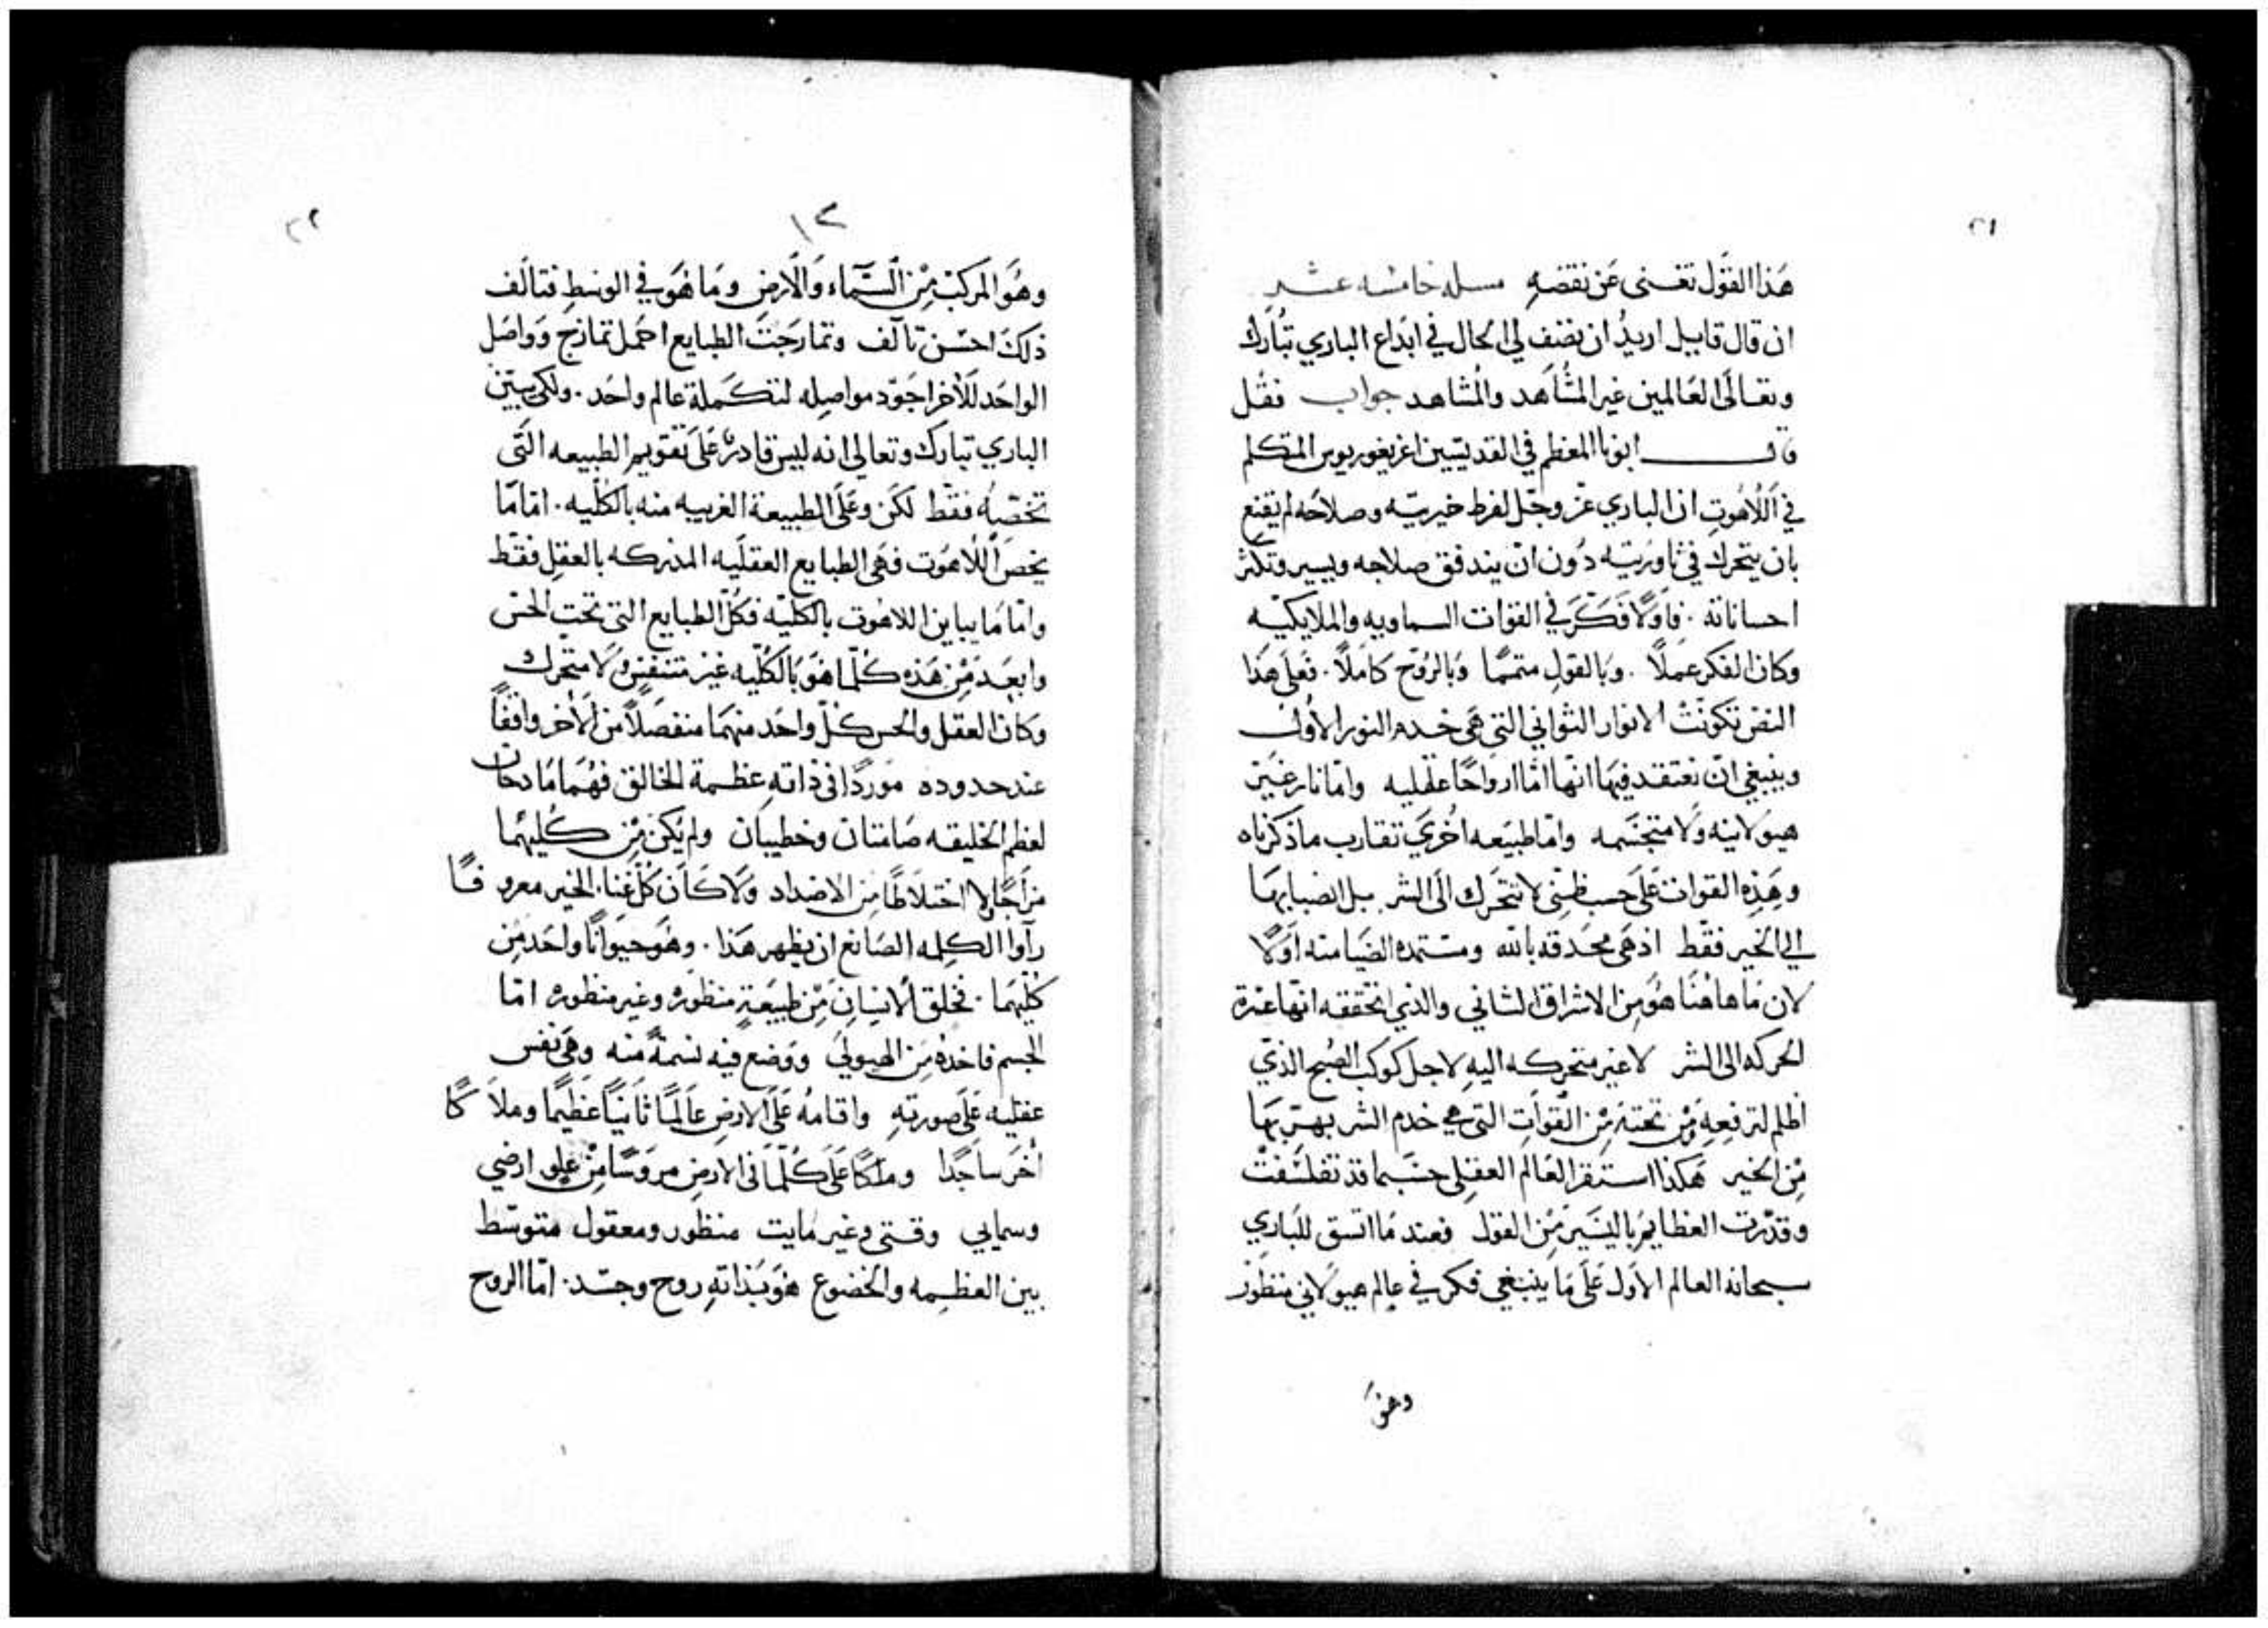 ٢١
هَذا القَول تغنى عَن نقضهِ مسله خامسه عشر
ان قال قايل اريدُ ان تصف لي الحال في ابداع الباري تبَارك
وتعالَى العَالمين غير المشُاهَد والمُشاهد جواب فقُل
قال ابونا المعظم في القديسَين اغريغوريوس المتكلم
في اللَاهُوتِ ان الباري عَز وجّل لفرط خيريتِه وصلاحَه لم يقنِع
بان يتحرك في ثاوريَته دُون ان يندفق صلاحِه ويسير وتكثر
احساناته . فاوَلًا فَكَرَ في القوات السماويه والملايكيّه
وكان الفكر عَملًا . وَبالقولِ متممًا وَبالرُوح كامَلًا . فعَلى هَذا
النصَ تكوَنَتْ الانوار الثواني التي هَى خدم النور الاوَل
وينبغي ان نعتقد فيهَا انهّا امّا ارواحًا عقليه وامّا نار غيَر
هيوَلانيه وَلا متجسَمه وامّا طبيَعه اخُرى تقارب ماذكرناه
وهَذِه القوات عَلَى حسب ظنِى لا تتحَرك الَى الشر بل انصبابهَا
الى الخير فقَط اذ هَى محَدقه بالله ومستمده الضيَا منه اوَلًا
لان مَا هاهُنَا هُوَ مِن الاشراق الثاني والذي اتحققه انهّا عَسرة
الحركه الى الشر لا غير متحرِكه اليهِ لاجل كوكب الصُبح الذي
اظلم لترفعهِ ومَن تحتهَ مِن القَوات التي هي خدم الشر بهرَبهَا
مِن الخير هَكذا استقر العَالم العقِلى حسَبما قد تفلسَفتْ
وقدَرت العظايمَ باليسَير مِن القول فعند مَا اتسق للبَاري
سبحانهُ العالم الاوَل عَلَى مَا ينبَغي فكر في عالِم هيوَلاني منظوَر
وهَوَ
٢٢
١٢
وهُوَ المرَكبْ مِن السَّمَاء وَالَارض ومَا هُوَ في الوسَطِ فتالَف
ذلكَ احسَن تآلف وتمازجَت الطبايع اجَمل تمازج وَواصَل
الواحَد للآخر اجوَد مواصِله لتكمَلة عالم واحَد . ولكي يبيّن
الباري تبارك وتعالي انه ليسَ قادرً عَلَى تقويم الطبيعه التَى
تخصّهُ فقَط لكَن وعَلَى الطبيعة الغريبه منه بالكُليه . امّا مَا
يخصَ اللَاهُوت فهَى الطبايع العقلَيه المدركه بالعقِل فقَط
وامّا مَا يباين اللاهُوت بالكليّه فكلُ الطبايع التي تحت الحسَ
وابعَد مَن هَذه كُلمّا هَوَ بَالكُليه غيَر متنفسٍ وَلا متحَرك
وكان العقل والحس كُلّ واحَد منهمَا منفصَلًا من الآخر واقفًا
عند حدوده مَورِدًا في ذاتهِ عظمة الخالق فهُما مَادحَان
لعظم الخليقه صَامتان وخطيبان ولم يكنَ مِن كُليهُما
مزَاجًا ولا اختلَاطًا مِن الاضداد وَلا كَاَن كُلّ غنا الخير معروفًا
رآوا الكلِمه الصَانع ان يظهر هَذا . وهُوَ حيوَانًا واحَد مِن
كليهَما . فخلق الانسَان مَن طبيَعةٍ منظوره وغير منظوره امّا
الجسم فاخذهُ مِن الهيوليَ ووَضع فيِه نسَمةً منه وهَى نفس
عقليه عَلَى صورتهِ واقامهُ عَلَى الارض عاَلمًا ثانيًا عَظيمًا وملاكًا
اَخر ساجَدًا ومَلكًا عَلَى كُلمّا في الارض مروَسًا مِن علو ارضي
وسمايي وقتى وغير مايت منظور ومعقول متوسَط
بين العظِمه والخضوع هَوَ بَذاتهِ روح وجسَد . امّا الروح